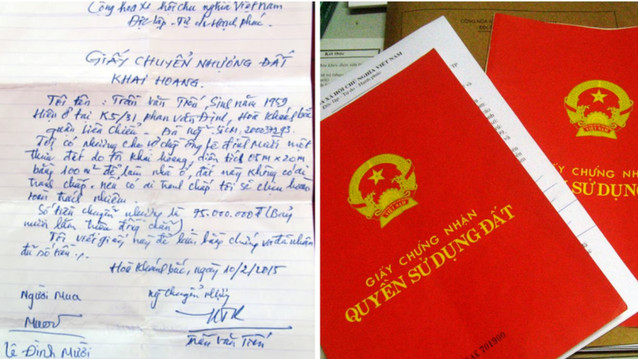 Cộng hòa xã hội chủ nghĩa Việt Nam
Độc lập - Tự do - Hạnh phúc
GIẤY CHUYỂN NHƯỢNG ĐẤT
KHAI HOANG
Tôi tên : Trần Văn Tiến, Sinh năm 1959
Hiện ở tại K5/31, Phan Văn Định, Hòa Khánh Bắc
quận Liên Chiểu.
Tôi có nhượng cho vợ chồng ông Lê Đình Mười một
thửa đất do tôi khai hoang, diện tích 05m x 20m
bằng 100m² để làm nhà ở, đất này không có ai
tranh chấp. nếu có ai tranh chấp tôi sẽ chịu hoàn
toàn trách nhiệm.
Số tiền chuyển nhượng là 95.000.000đ
Tôi viết giấy này để làm bằng chứng và đã nhận
đủ số tiền
Hòa Khánh Bắc, ngày 10/2/2015
Người Mua
Mười
Lê Đình Mười
Trần Văn Tiến
GIẤY CHỨNG NHẬN
QUYỀN SỬ DỤNG ĐẤT
VIỆT NAM
701909
XÃ HỘI CHỦ NGHĨA VIỆT NAM
GIẤY CHỨNG NHẬN
QUYỀN SỬ DỤNG ĐẤT
VIỆT NAM